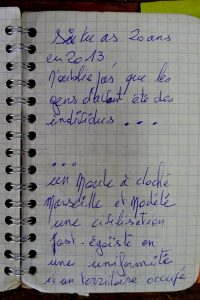 Si tu as 20 ans
en 2013,
N'oublie pas que les
gens d'avant été des
individus...
...
un Moule à
Marseille et
une civilisation
fast-égoïste en
une uniformité
d'un territoire occupé